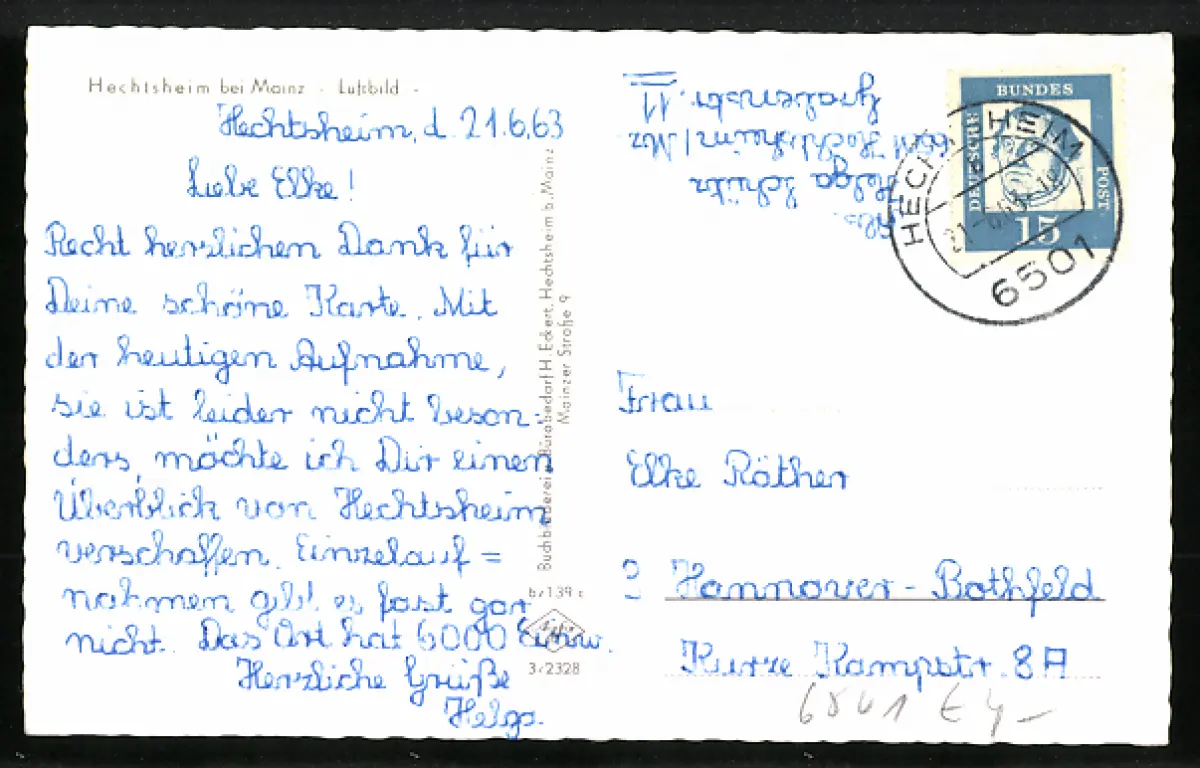 Hechtsheim bei Mainz - Luftbild -
Hechtsheim, d. 21.6.63
Liebe Elke!
Recht herzlichen Dank für
Deine schöne Karte. Mit
der heutigen Aufnahme,
sie ist leider nicht beson-
ders, möchte ich Dir einen
Überblick von Hechtsheim
verschaffen. Einzelauf=
nahmen gibt es fast gar
nicht. Das Ort hat 6000 Einw.
Herzliche Grüße
Helga.
Buchbinderei Bürobedarf H. Eckert, Hechtsheim b. Mainz
Mainzer Straße 9
b/139 c
3/2328
Abs.
Helga Schütz
6501 Hechtsheim/Mz.
Grabenstr. 11
DEUTSCHE BUNDES POST
15
HECHTSHEIM
6501
Frau
Elke Röther
3 Hannover-Bothfeld
Kurze Kampstr. 8A
6801 € 4,-